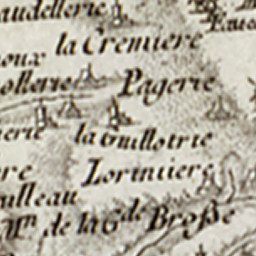 audellerie
la Cremiere
oux
ollerie Pagerie
erie la Guillotrie
re Lormiere
ulleau
Mn de la Gde Brosse